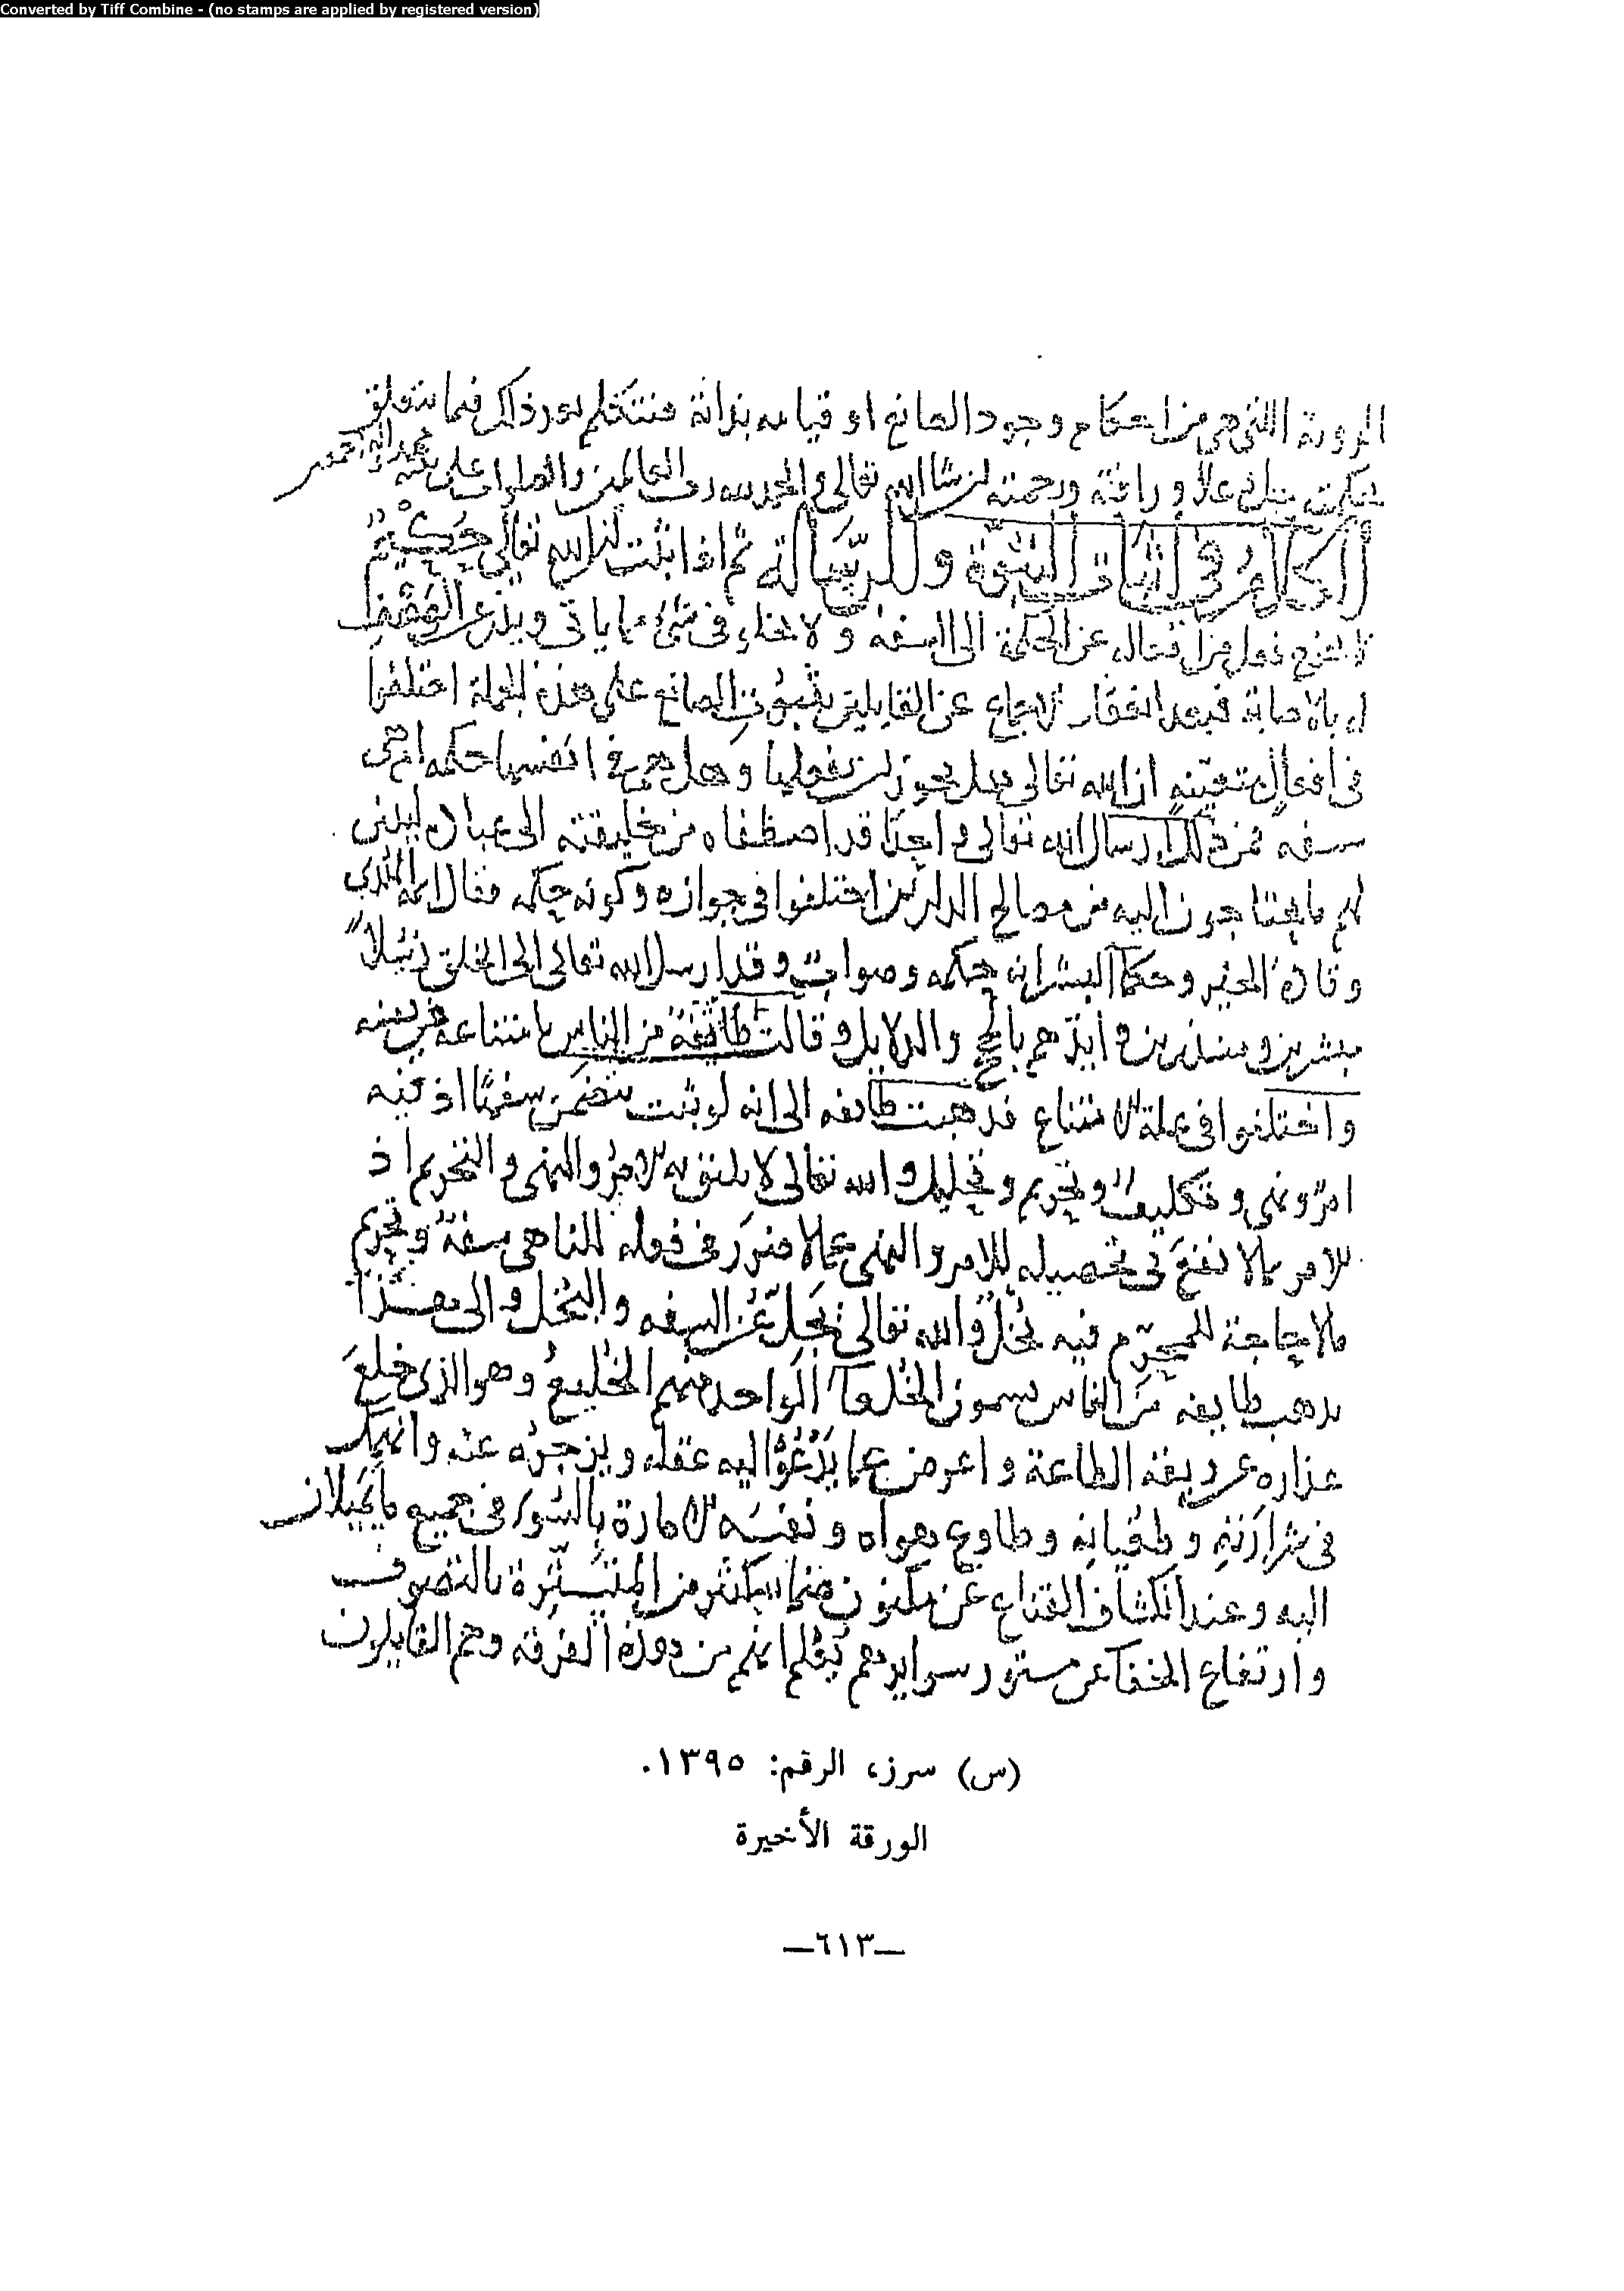 Converted by Tiff Combine - (no stamps are applied by registered version)
الروية التى هى من احكام وجود الصانع او قيامه بذاته فنتكلم بعد ذلك فيما يتعلق
جل وعلا ورافته ورحمته ان شا الله تعالى والحمد لله رب العالمين والصلوات على محمد واله اجمعين
الكلام فى اثبات النبوة والرسالة ثم اذا ثبت ان الله تعالى حكيم
لا يخرج فعل من افعاله عن الحكمة الى السفه ولا يخلو فى شئ مما ياتى ويذر عن
الاصابة فبعد انعقاد الاجماع عن القايلين بثبوت الصانع على هذه الجملة اختلفوا
فى افعال متعينة ان الله تعالى هل يجوز ان يفعلها وهل هى فى انفسها حكمه ام هى
سفه فمن ذلك ارسال الله تعالى واحدا قد اصطفاه من خليقته الى عباده ليبين
لهم ما يحتاجون اليه من مصالح الدارين اختلفوا فى جوازه وكونه حكمه فقال ايمة الهدى
وقادة الخير وحكما البشر انه حكمه وصواب وقد ارسل الله تعالى الى الخلق رسلا
مبشرين ومنذرين وايدهم بالحجج والدلايل وقالت طائفة من الناس بامتناعه
واختلفوا فى علة الامتناع فذهبت طايفه الى انه لو ثبت لتضمن سفها اذ فيه
امر ونهى وتكليف وتحريم وتحليل والله تعالى لا يليق به الامر والنهى والتحريم اذ
الامر بما لا نفع فى تحصيله للامر والنهى عما لا ضرر فى فعله للناهى سفه وتحريم
ما لا حاجة للمحرم فيه بخل والله تعالى يجل عن السفه والبخل والى هذا
يذهب طايفه من الناس يسمون الخلعا الواحد منهم الخليع وهو الذى خلع
عذاره عن ربقة الطاعة واعرض عما يدعوا اليه عقله ويزجره عنه وانهمك
فى شرارته وطغيانه وطاوع هواه ونفسه الامارة بالسوء فى جميع ما يميلان
اليه وعند انكشاف القناع عن مكنون ضماير كثير من المتسترة بالتصوف
وارتفاع الخفا عن مستور سرايرهم يعلم انهم من هذه الفرقة وهم القايلون
(س) سرز، الرقم: ١٣٩٥.
الورقة الأخيرة
—٦١٣—